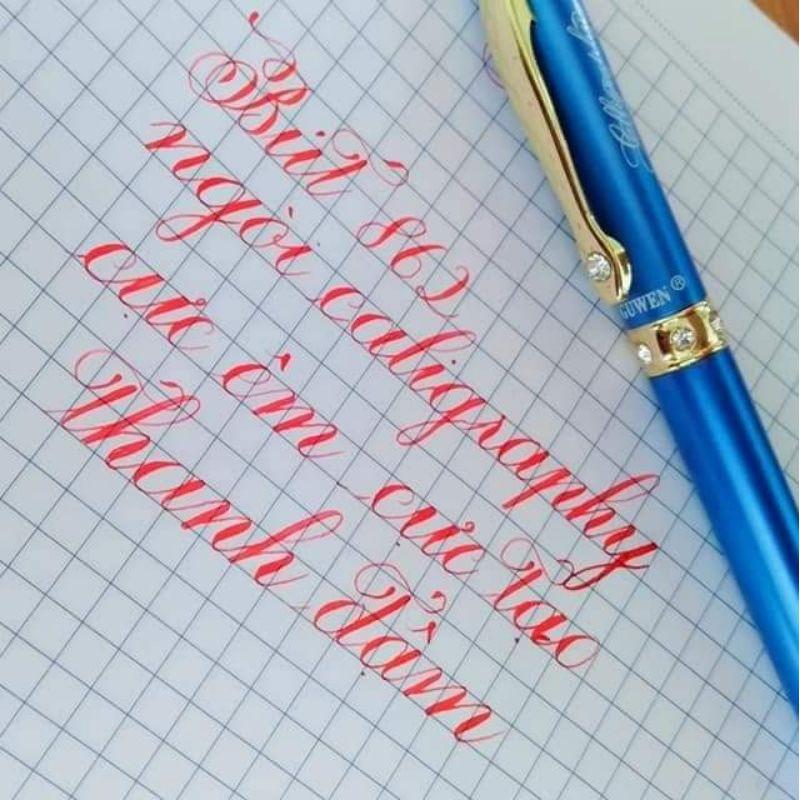 Bút 862
ngòi caligraphy
cực êm cực tạo
Thanh đậm
GUWEN®